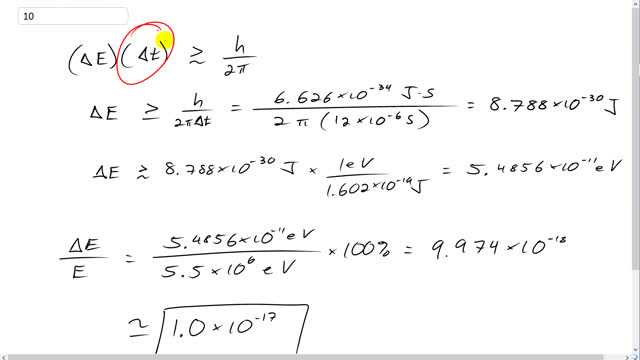 10
(ΔE)(Δt) ≳ h/2π
ΔE ≥ h/2πΔt = 6.626×10⁻³⁴ J·s / 2π (12×10⁻⁶s) = 8.788×10⁻³⁰J
ΔE ≳ 8.788×10⁻³⁰ J × 1eV/1.602×10⁻¹⁹J = 5.4856×10⁻¹¹eV
ΔE/E = 5.4856×10⁻¹¹eV / 5.5×10⁶ eV ×100% = 9.974×10⁻¹⁸
≃ 1.0×10⁻¹⁷